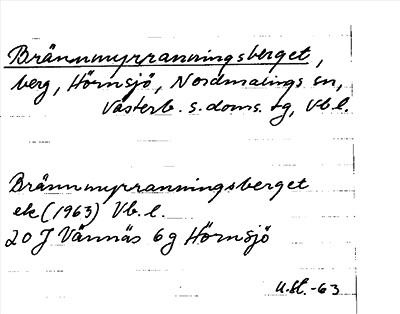 Brännmyrranningsberget,
berg, Hörnsjö, Nordmalings sn,
Västerb. s. doms. tg, Vb l.
Brännmyrranningsberget
ek (1963) Vb. l.
20 J Vännäs 6 g Hörnsjö
U.Sl.-63